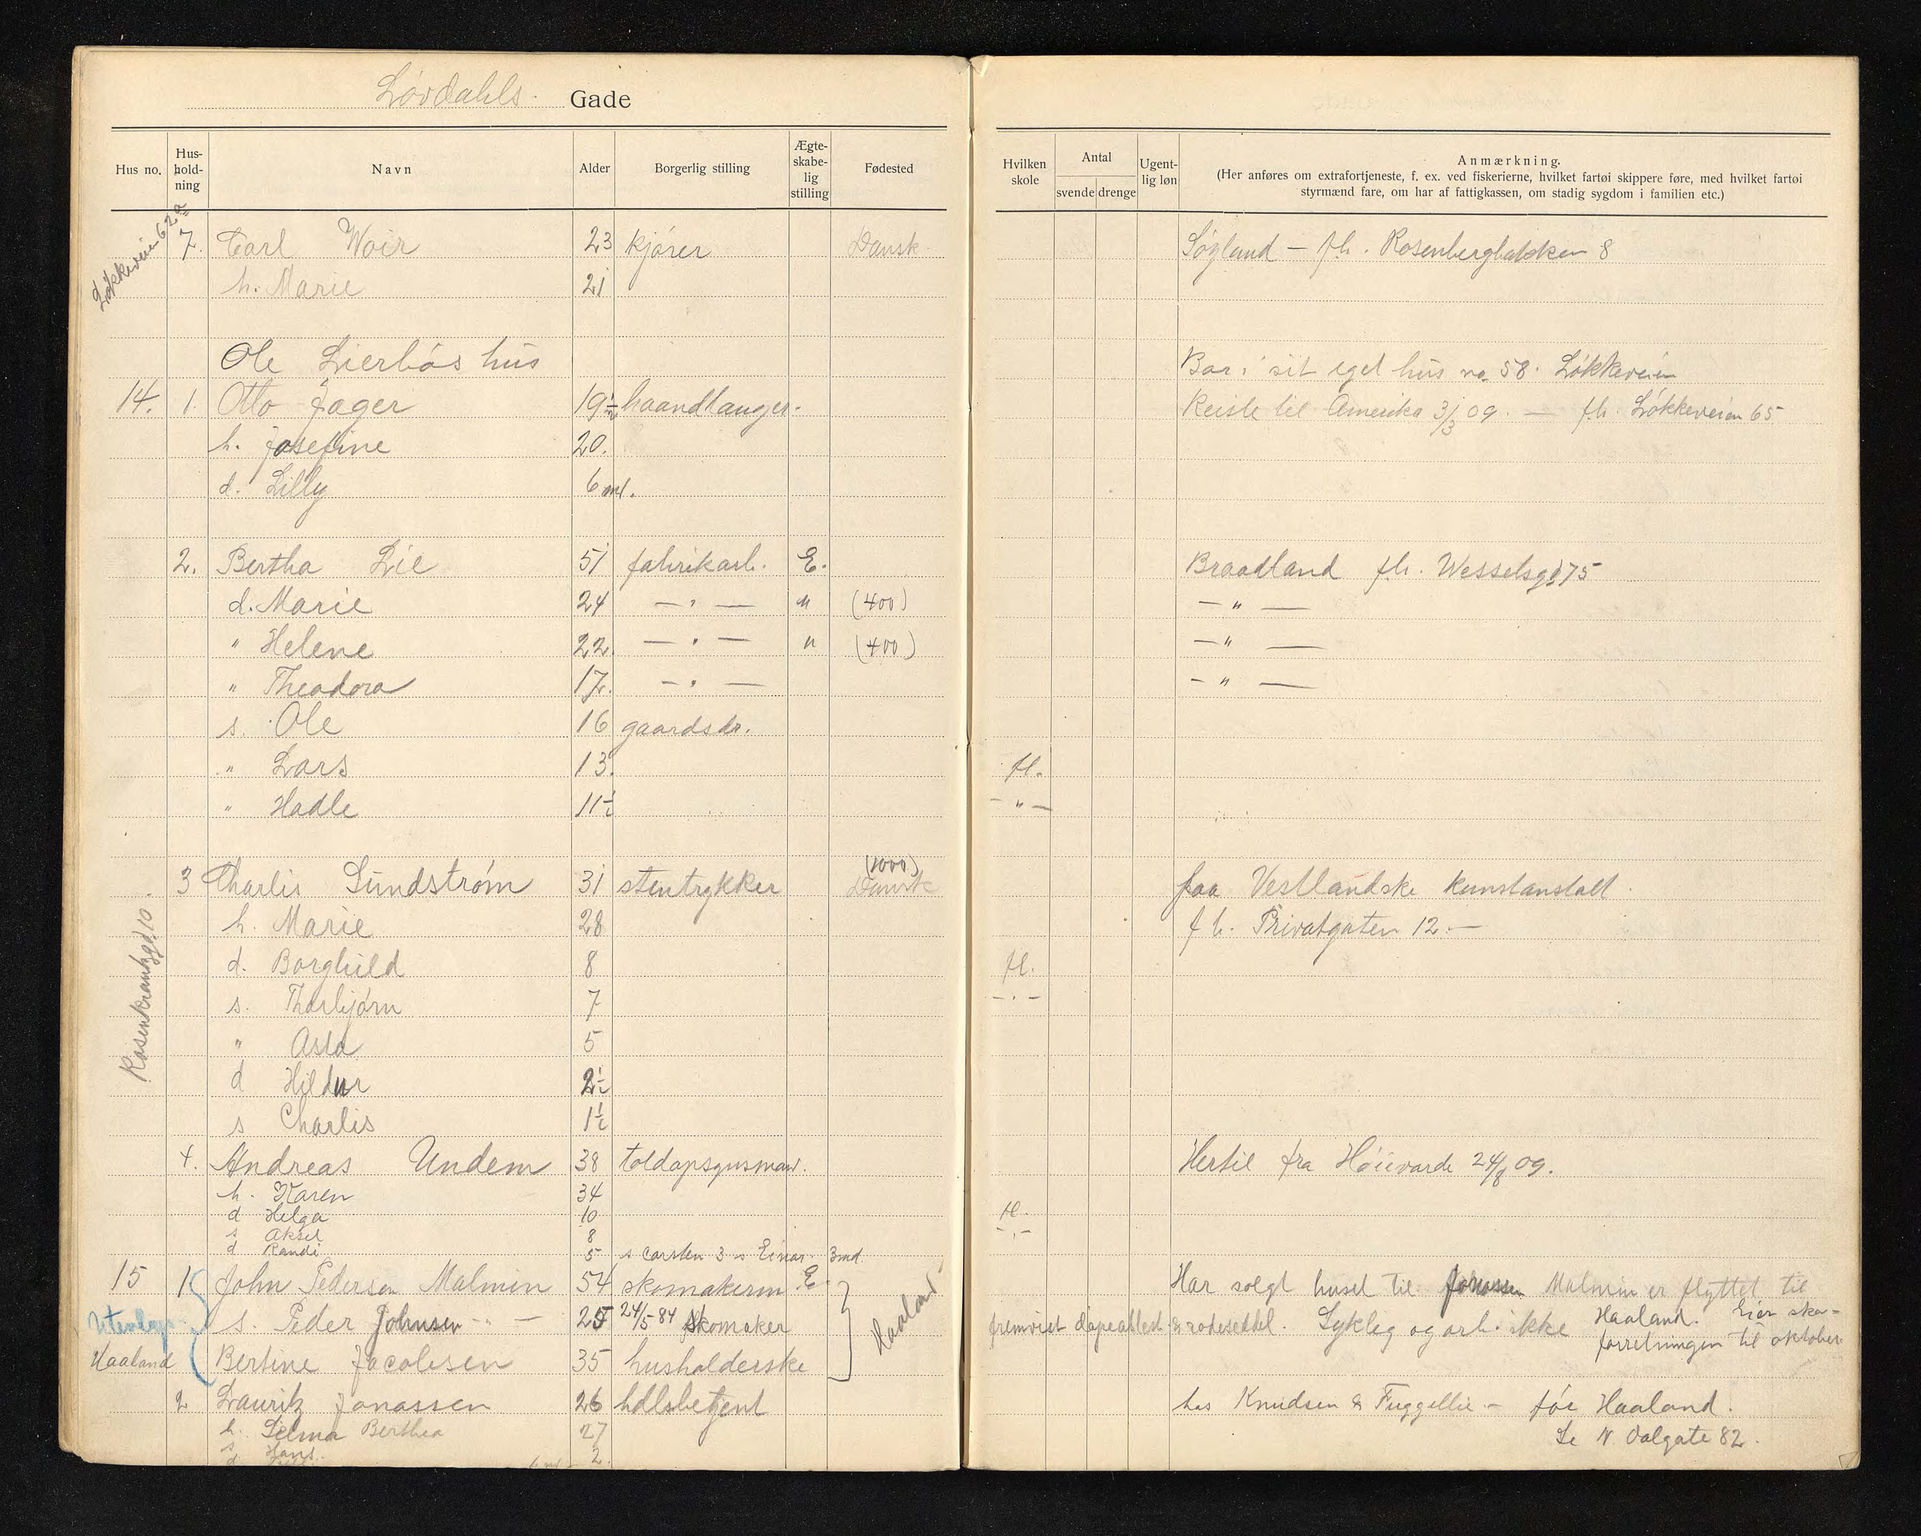 Løvdahls Gade
Hus no. Hus-hold-ning Navn Alder Borgerlig stilling Ægte-skabe-lig stilling Fødested Hvilken skole Antal svende drenge Ugent-lig løn Anmærkning.
(Her anføres om extrafortjeneste, f. ex. ved fiskerierne, hvilket fartøi skippere føre, med hvilket fartøi
styrmænd fare, om har af fattigkassen, om stadig sygdom i familien etc.)
Løkkeveien 62a
7. Carl Woir 23 kjører Dansk Søyland — fh. Rosenbergbakken 8
h. Marie 21
Ole Lierbøs hus Bor i sit eget hus no 58. Løkkeveien
14. 1. Otto Jager 19½ haandlanger. Reiste til Amerika 3/3 09. — fh. Løkkeveien 65
h. Josefine 20.
d. Lilly 6 md.
2. Bertha Lie 51 fabrikarb. E. Braadland fh. Wesselsgd 75
d. Marie 24 — " — " (400) — " —
" Helene 22 — " — " (400) — " —
" Theodora 17. — " — — " —
s. Ole 16 gaardsdr.
" Lars 13. fl.
" Hadle 11½ — " —
Rosenkrantzgd 10.
3 Charlis Sundstrøm 31 stentrykker (1000) Dansk paa Vestlandske kunstanstalt.
h. Marie 28 fh. Privatgaten 12. —
d. Borghild 8 fl.
s. Thorbjørn 7 — " —
" Asta 5
d Hildur 2½
s Charlis 1½
4. Andreas Undem 38 toldopsynsmand. Hertil fra Høievarde 24/8 09.
h. Karen 34
d Helga 10 fl.
s Aksel 8 — " —
d Randi 5 s Carsten 3 s Einar 3 md.
15 1 John Pedersen Malmin 54 skomakerm E. Haaland Har solgt huset til Jonassen Malmin er flyttet til
Utenbys s. Peder Johnsen 25 24/5-84 Skomaker fremvist daapsattest & rodeseddel. Sykleg og arb. ikke Haaland. Eier sko-
Haaland Bertine Jacobsen 35 husholderske forretningen til oktober.
2 Laurik Jonassen 26 hdlsbetjent hos Knudsen & Fuggellie — før Haaland.
h. Selma Berthea 27 Se N. Dalgate 82.
s Hans. 2